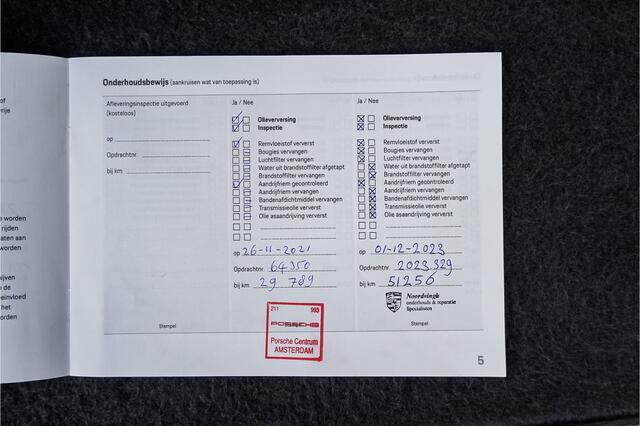 of
rije
worden
rijden
aten aan
worden
ijven
de
einvloed
het
orden
Onderhoudsbewijs (aankruisen wat van toepassing is)
Afleveringsinspectie uitgevoerd
(kosteloos)
op
Opdrachtnr.
bij km
Stempel
Ja / Nee
Olieverversing
Inspectie
Remvloeistof ververst
Bougies vervangen
Luchtfilter vervangen
Water uit brandstoffilter afgetapt
Brandstoffilter vervangen
Aandrijfriem gecontroleerd
Aandrijfriem vervangen
Bandenafdichtmiddel vervangen
Transmissieolie ververst
Olie asaandrijving ververst
op 26-11-2021
Opdrachtnr. 64350
bij km 29 789
211 993
PORSCHE
Porsche Centrum
AMSTERDAM
Ja / Nee
Olieverversing
Inspectie
Remvloeistof ververst
Bougies vervangen
Luchtfilter vervangen
Water uit brandstoffilter afgetapt
Brandstoffilter vervangen
Aandrijfriem gecontroleerd
Aandrijfriem vervangen
Bandenafdichtmiddel vervangen
Transmissieolie ververst
Olie asaandrijving ververst
op 01-12-2023
Opdrachtnr. 2023.329
bij km 51250
Noordvingh
onderhouds & reparatie
Specialisten
Stempel
5